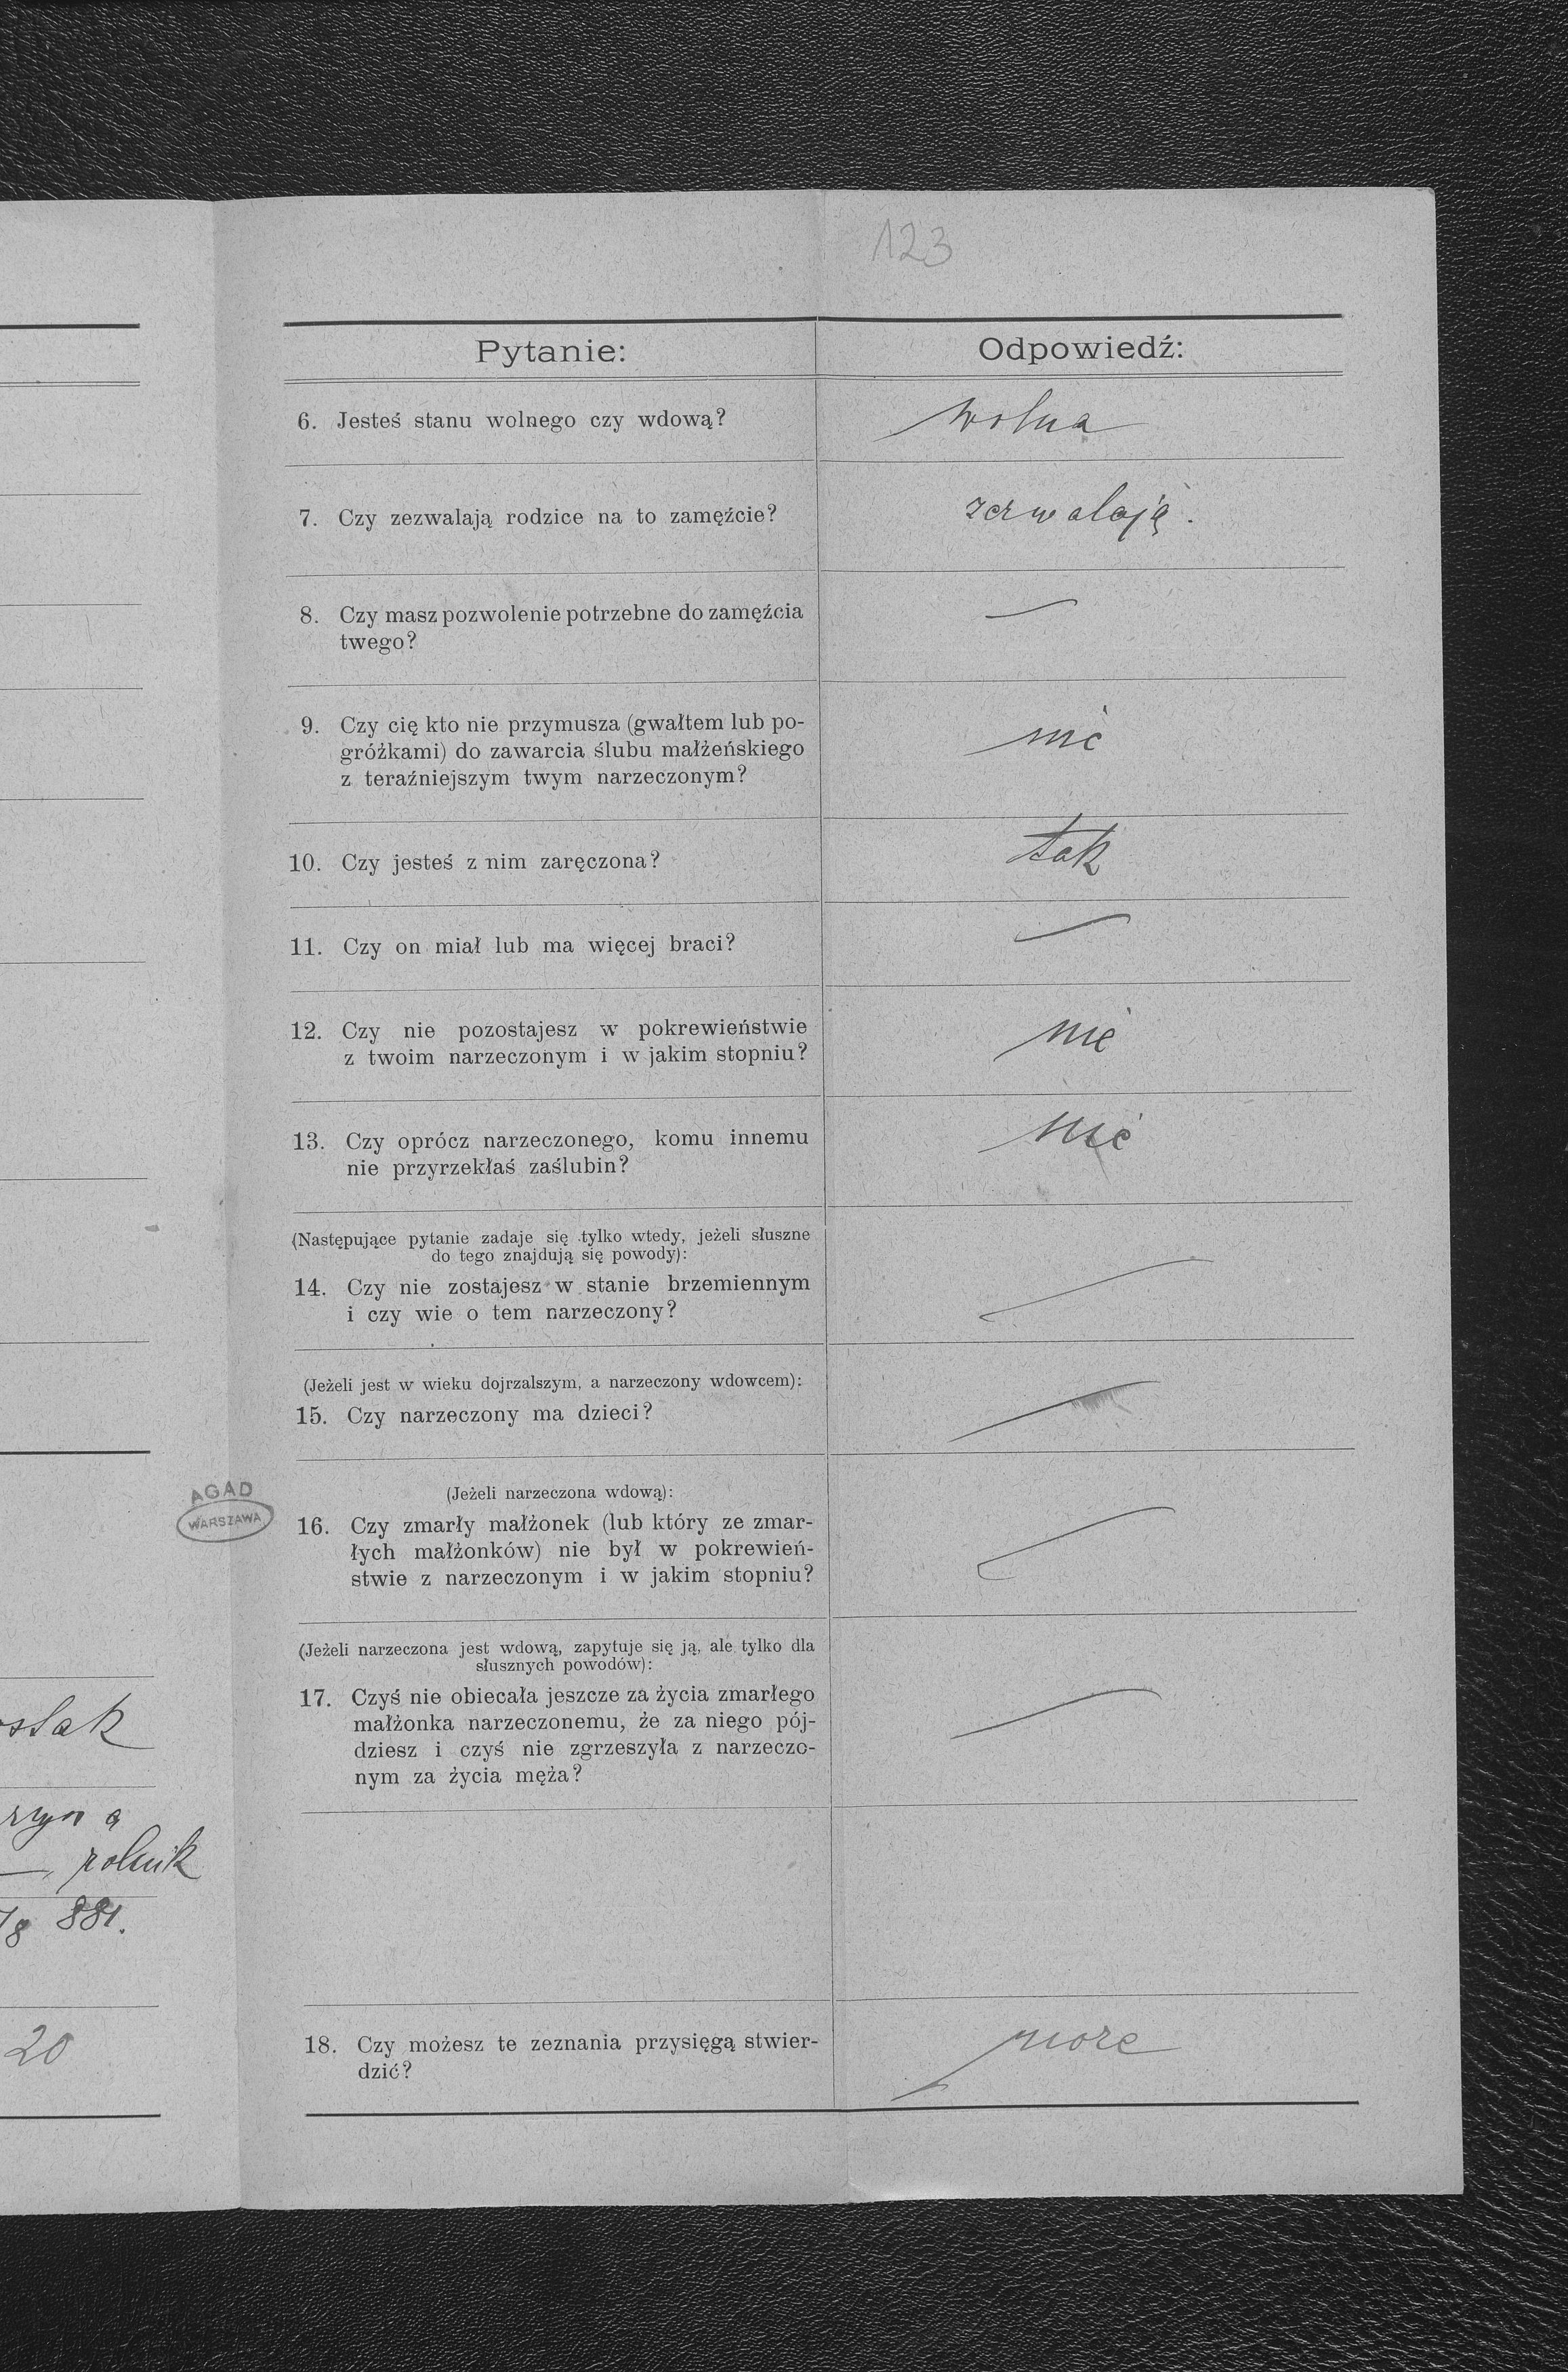 123
Pytanie:
Odpowiedź:
6. Jesteś stanu wolnego czy wdową?
wolna
7. Czy zezwalają rodzice na to zamęźcie?
zezwalają.
8. Czy masz pozwolenie potrzebne do zamęźcia
twego?
—
9. Czy cię kto nie przymusza (gwałtem lub po-
gróżkami) do zawarcia ślubu małżeńskiego
z teraźniejszym twym narzeczonym?
nie
10. Czy jesteś z nim zaręczona?
tak
11. Czy on miał lub ma więcej braci?
—
12. Czy nie pozostajesz w pokrewieństwie
z twoim narzeczonym i w jakim stopniu?
nie
13. Czy oprócz narzeczonego, komu innemu
nie przyrzekłaś zaślubin?
nie
(Następujące pytanie zadaje się tylko wtedy, jeżeli słuszne
do tego znajdują się powody):
14. Czy nie zostajesz w stanie brzemiennym
i czy wie o tem narzeczony?
—
(Jeżeli jest w wieku dojrzalszym, a narzeczony wdowcem):
15. Czy narzeczony ma dzieci?
—
(Jeżeli narzeczona wdową):
16. Czy zmarły małżonek (lub który ze zmar-
łych małżonków) nie był w pokrewień-
stwie z narzeczonym i w jakim stopniu?
—
(Jeżeli narzeczona jest wdową, zapytuje się ją, ale tylko dla
słusznych powodów):
17. Czyś nie obiecała jeszcze za życia zmarłego
małżonka narzeczonemu, że za niego pój-
dziesz i czyś nie zgrzeszyła z narzeczo-
nym za życia męża?
—
18. Czy możesz te zeznania przysięgą stwier-
dzić?
może
AGAD
WARSZAWA
rolnik
881.
20